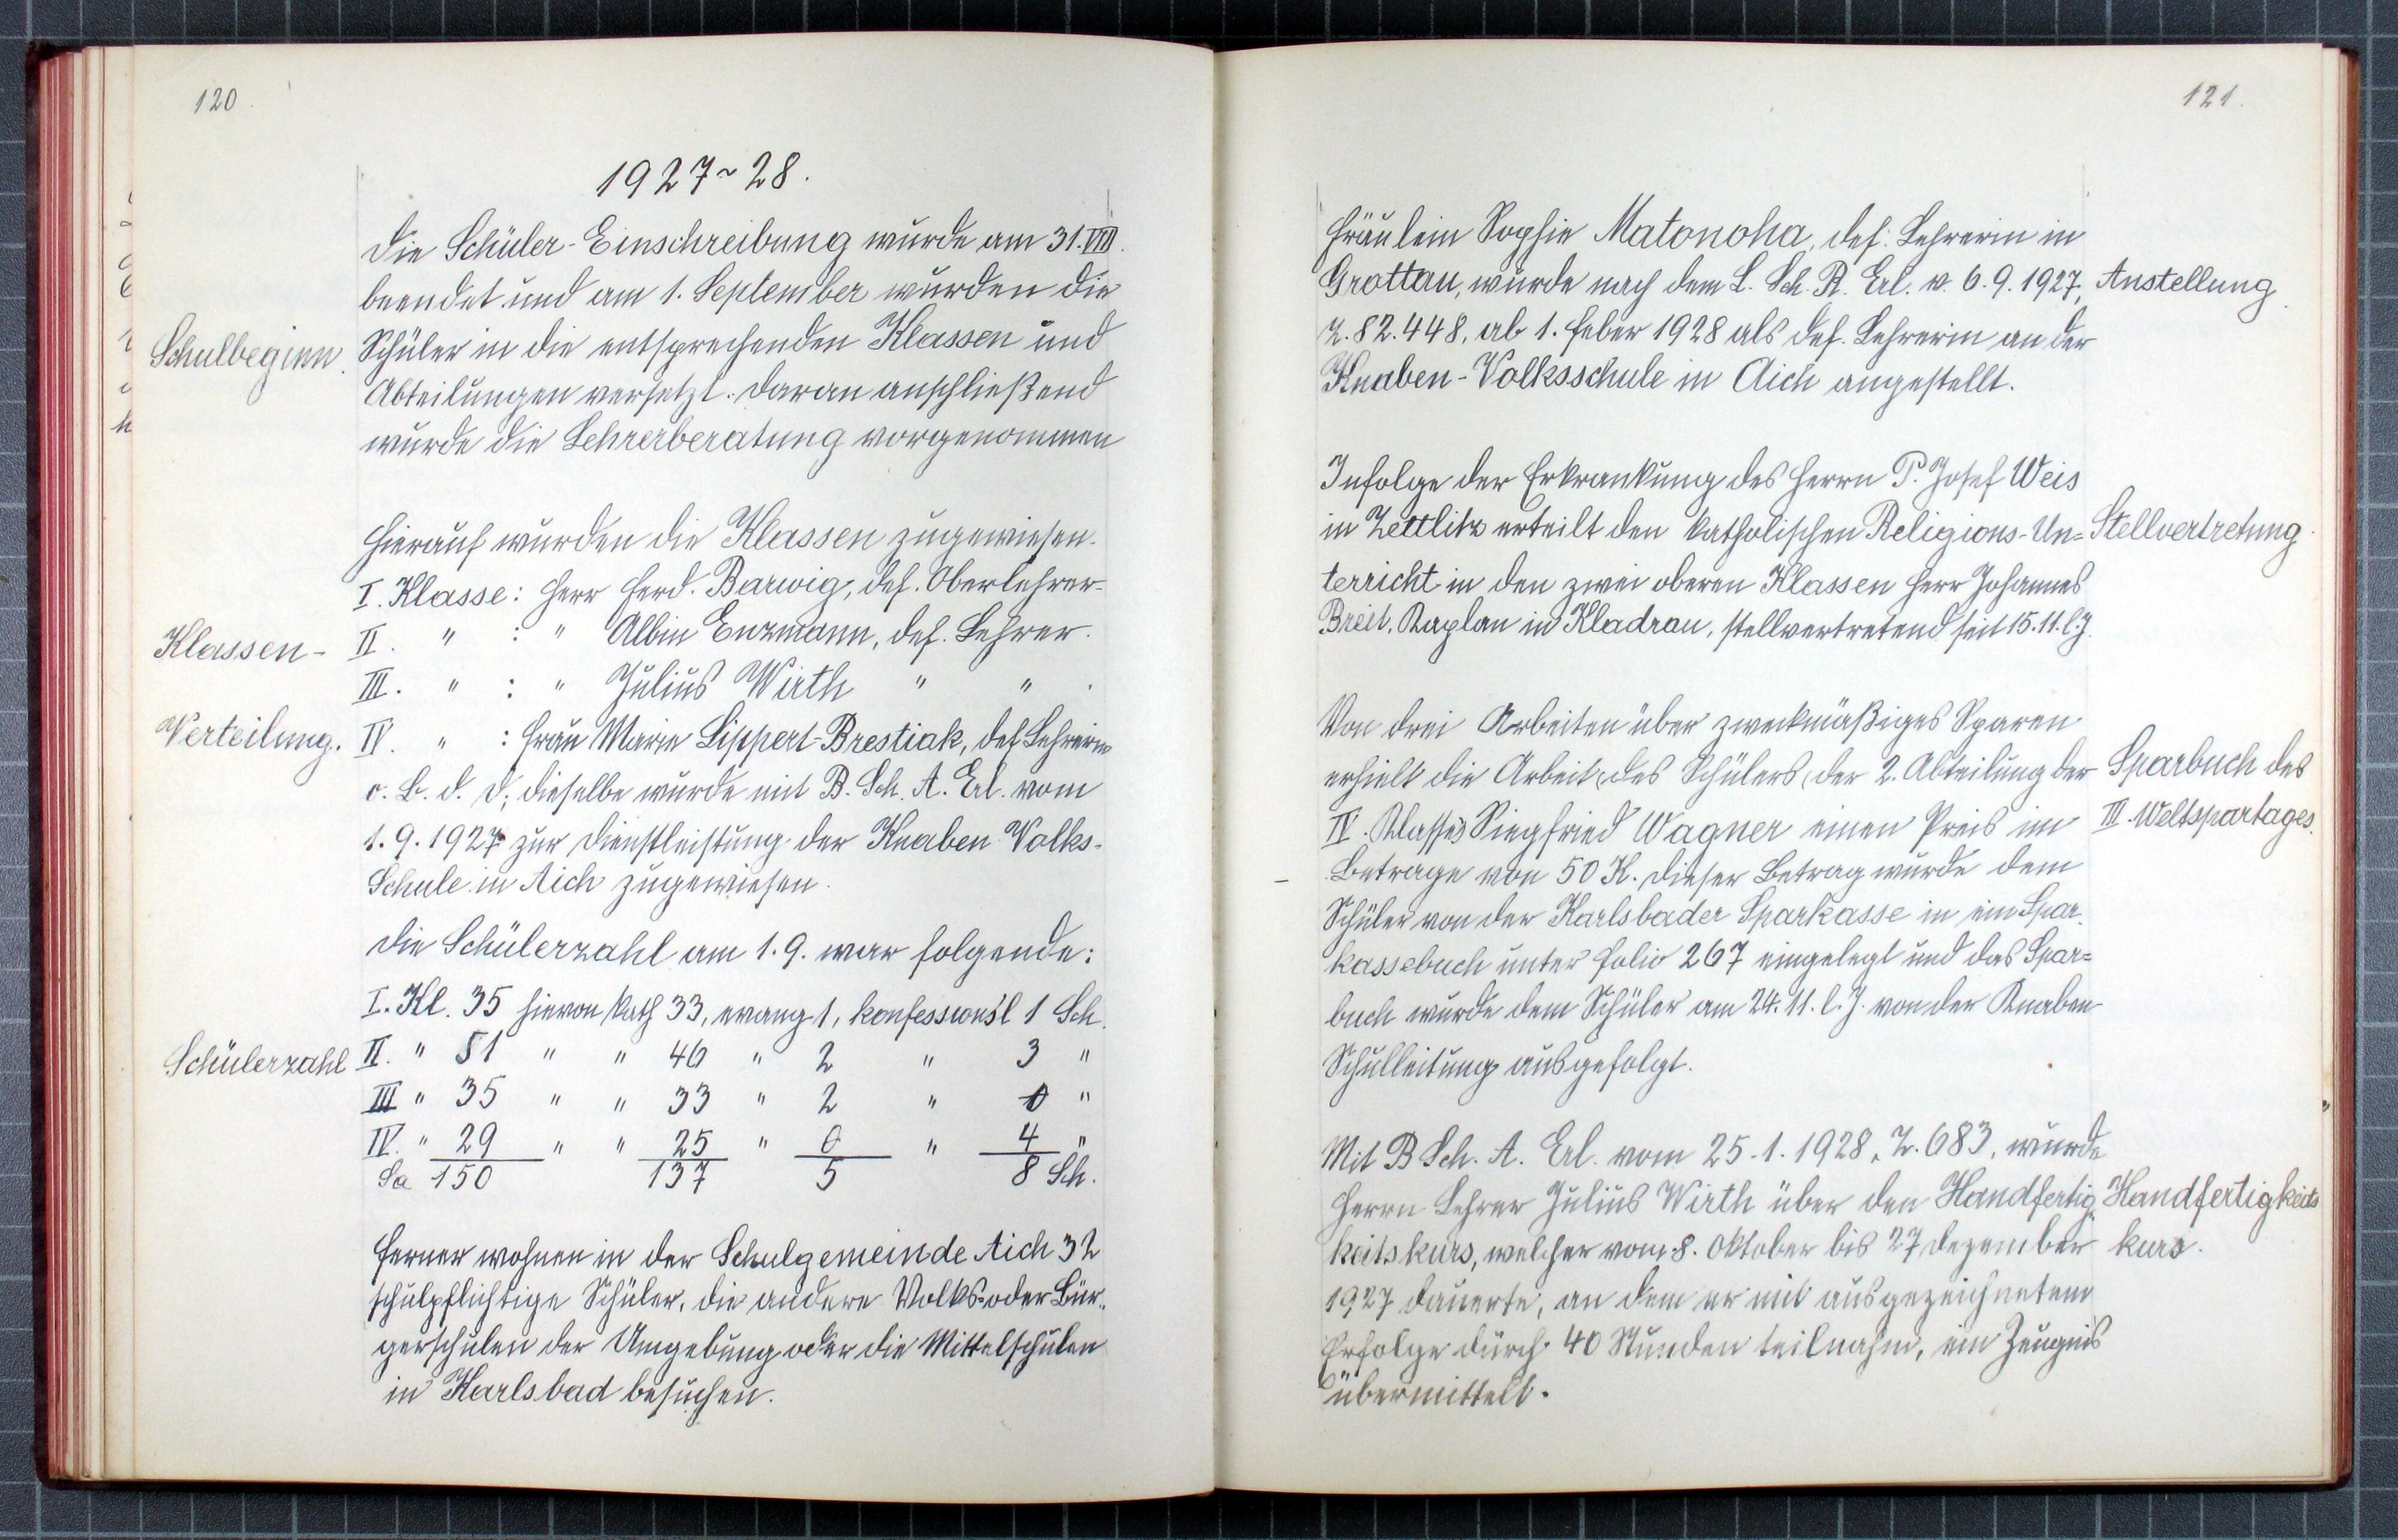 120.
1927~28.
Die Schüler-Einschreibung wurde am 31.VIII.
beendet und am 1. September wurden die
Schulbeginn. Schüler in die entsprechenden Klassen und
Abteilungen versetzt. Daran anschließend
wurde die Lehrerberatung vorgenommen
Hierauf wurden die Klassen zugewiesen.
I. Klasse: Herr Ferd. Barwig, def. Oberlehrer.
Klassen- II. " : " Albin Enzmann, def. Lehrer.
III. " : " Julius Wirth " " .
Verteilung. IV. " : Frau Marie Lippert-Brestiak, def. Lehrerin
o. B. d. D; dieselbe wurde mit B. Sch. A. Erl. vom
1.9.1927 zur Dienstleistung der Knaben Volks-
Schule in Aich zugewiesen.
Die Schülerzahl am 1.9. war folgende:
I. Kl. 35 hievon kath 33, evang 1, konfessionsl 1 Sch.
Schülerzahl II. " 51 " " 46 " 2 " 3 "
III " 35 " " 33 " 2 " 0 "
IV. " 29 " " 25 " 0 " 4 "
Sa 150 137 5 8 Sch.
Ferner wohnen in der Schulgemeinde Aich 32
schulpflichtige Schüler, die andere Volks- oder Bür-
gerschulen der Umgebung oder die Mittelschulen
in Karlsbad besuchen.
121.
Fräulein Sophie Matonoha, def. Lehrerin in
Grottau, wurde nach dem L. Sch. R. Erl. v. 6.9.1927, Anstellung.
Z. 82.448, ab 1. Feber 1928 als def. Lehrerin an der
Knaben-Volksschule in Aich angestellt.
Infolge der Erkrankung des Herrn P. Josef Weis
in Zettlitz erteilt den katholischen Religions-Un= Stellvertretung.
terricht in den zwei oberen Klassen Herr Johannes
Breit, Kaplan in Kladrau, stellvertretend seit 15.11. l. J.
Von drei Arbeiten über zweckmäßiges Sparen
erhielt die Arbeit des Schülers der 2. Abteilung der Sparbuch des
IV. Klasse Siegfried Wagner einen Preis im III. Weltspartages.
Betrage von 50 K. Dieser Betrag wurde dem
Schüler von der Karlsbader Sparkasse in ein Spar-
kassebuch unter Folio 267 eingelegt und das Spar=
buch wurde dem Schüler am 24.11. l. J. von der Knaben-
Schulleitung ausgefolgt.
Mit B. Sch. A. Erl. vom 25.1.1928, Z. 683, wurde
Herrn Lehrer Julius Wirth über den Handfertig- Handfertigkeits
keitskurs, welcher vom 8. Oktober bis 27 Dezember kurs.
1927 dauerte, an dem er mit ausgezeichnetem
Erfolge durch 40 Stunden teilnahm, ein Zeugnis
übermittelt.